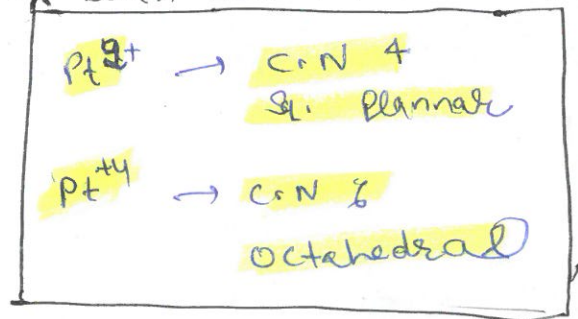 Pt²⁺ → C.N 4
Sq. Plannar
Pt⁺⁴ → C.N 6
Octahedral